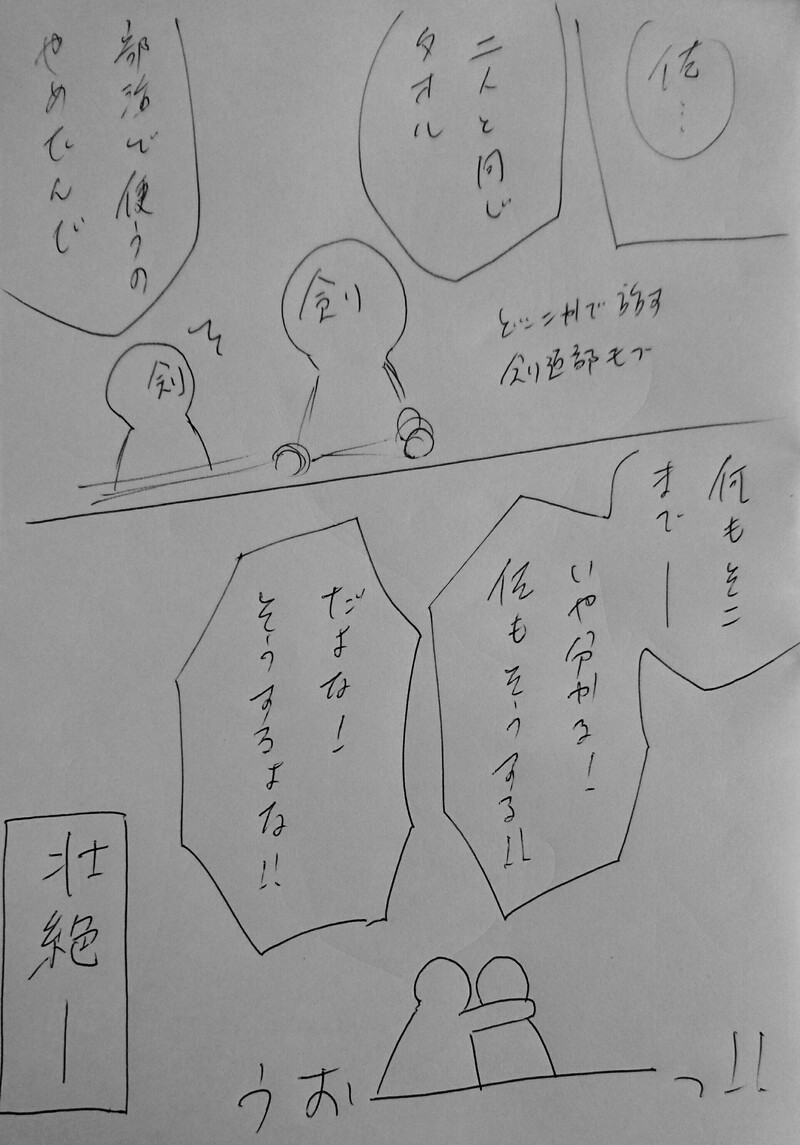 俺…
二人と同じ
タオル
部活で使うの
やめてんで
どこかで話す
剣道部モブ
剣
剣
何もそこ
まで―
いや分かる!
俺もそうする!!
だよな!
そうするよな!!
壮絶―
うおっ!!